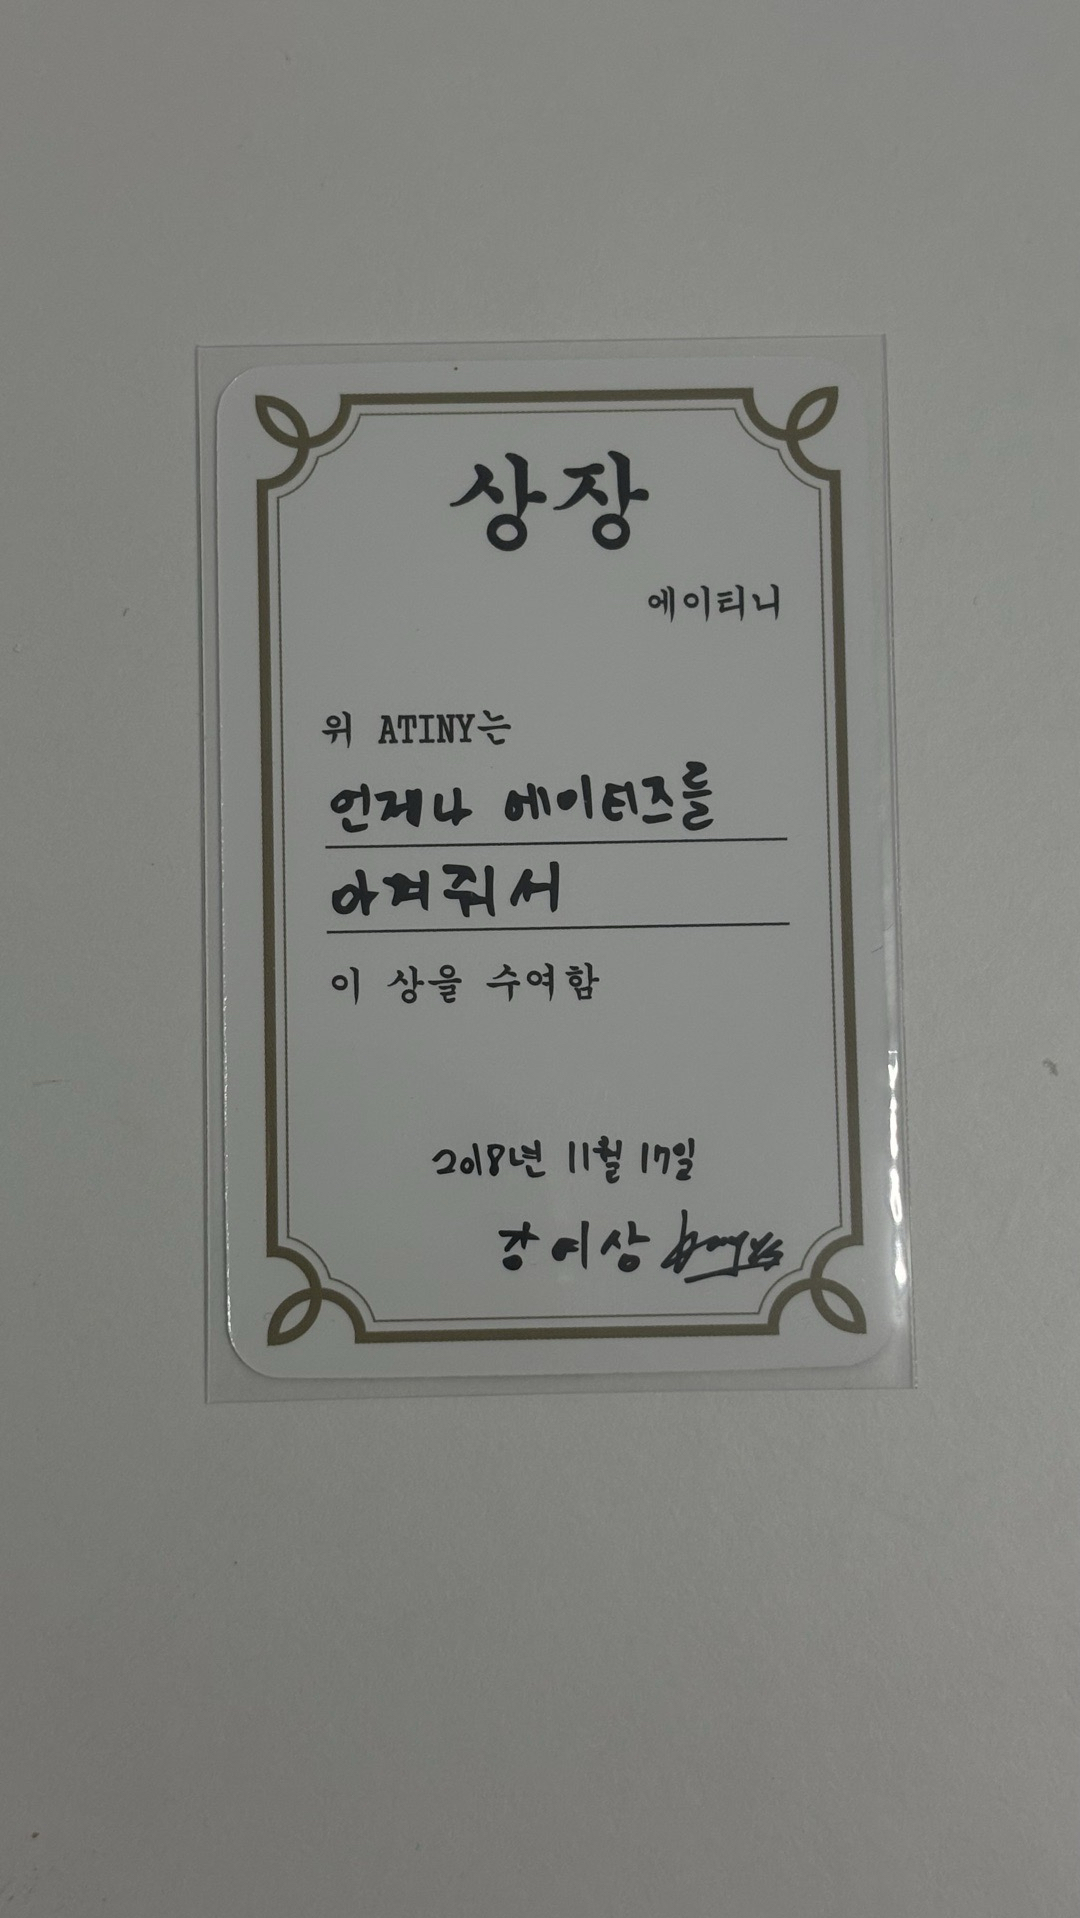 상장
에이티니
위 ATINY는
언제나 에이티즈를
아껴줘서
이 상을 수여함
2018년 11월 17일
강여상